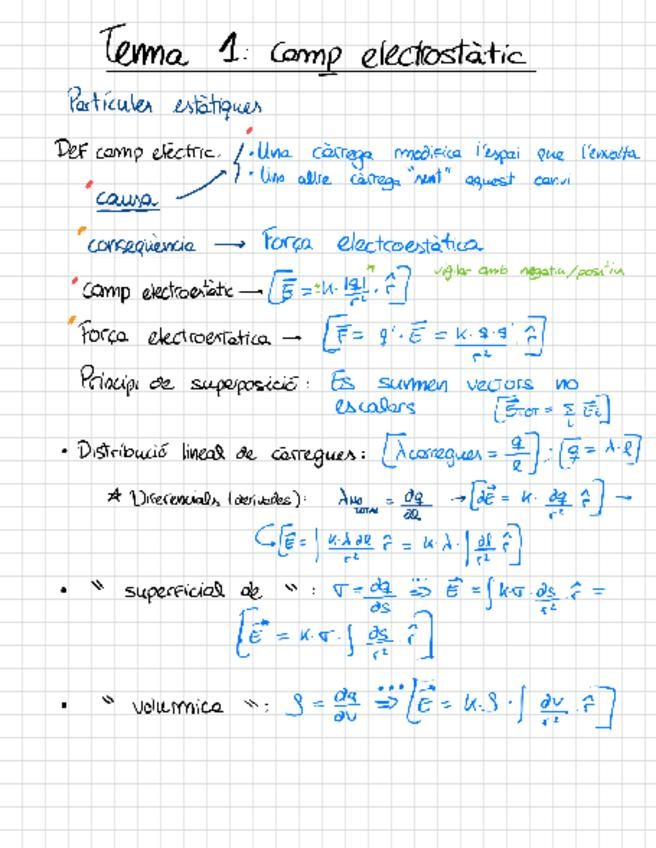 Tema 1: Camp electrostàtic
Partícules estàtiques
Def camp elèctric. { · Una càrrega modifica l'espai que l'envolta
· Una altre càrrega "sent" aquest canvi
causa
conseqüència → Força electroestàtica
vigilar amb negatiu/positiu
Camp electroestàtic → [E⃗ = ±K · |q|/r² · r̂]
Força electroestàtica → [F⃗ = q' · E⃗ = K·q·q'/r² r̂]
Principi de superposició: Es summen vectors no
escalars [E⃗TOT = Σi E⃗i]
• Distribució lineal de càrregues: [λcarregues = q/l] : [q = λ·l]
* Diferencials (derivades): λNO TOTAL = ∂q/∂l → [dE⃗ = K · ∂q/r² r̂] →
↪ [E⃗ = ∫ K·λ∂l/r² r̂ = K·λ·∫ ∂l/r² r̂]
• " superficial de ": σ = ∂q/∂s ⇒ E⃗ = ∫ K·σ·∂s/r² r̂ =
[E⃗ = K·σ·∫ ∂s/r² r̂]
• " volumnica ": ρ = ∂q/∂v ⇒ [E⃗ = K·ρ·∫ ∂v/r² r̂]